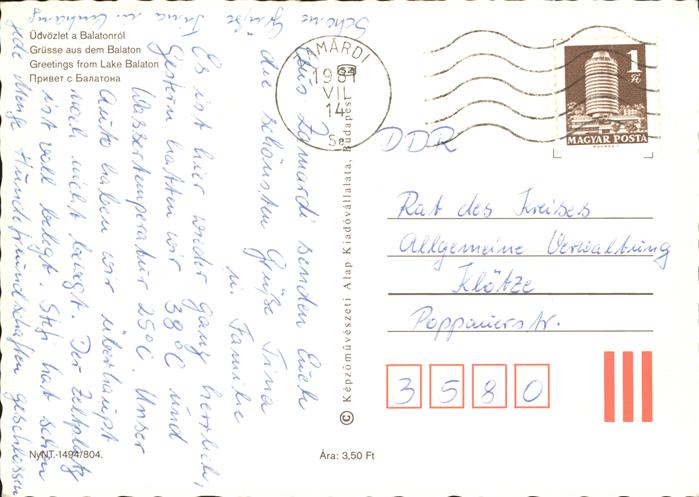 Üdvözlet a Balatonról
Grüsse aus dem Balaton
Greetings from Lake Balaton
Привет с Балатона
TAMÁRDI
1981
VII.
14
1 Ft
MAGYAR POSTA
DDR
Rat des Kreises
Allgemeine Verwaltung
Klötze
Poppauerstr.
3580
Aus Zamardi senden Euch
die schönsten Grüße Irina
u. Familie
Es ist hier wieder ganz herrlich,
Gestern hatten wir 38°C und
Wassertemperatur 25°C. Unser
Auto haben wir überhaupt
noch nicht bewegt. Der Zeltplatz
ist voll belegt. Stefi hat schon
jede Menge Hundefreundschaften geschlossen
Schöne
Grüße
© Képzőművészeti Alap Kiadóvállalata, Budapest
NyNT.-1494/804.
Ára: 3,50 Ft